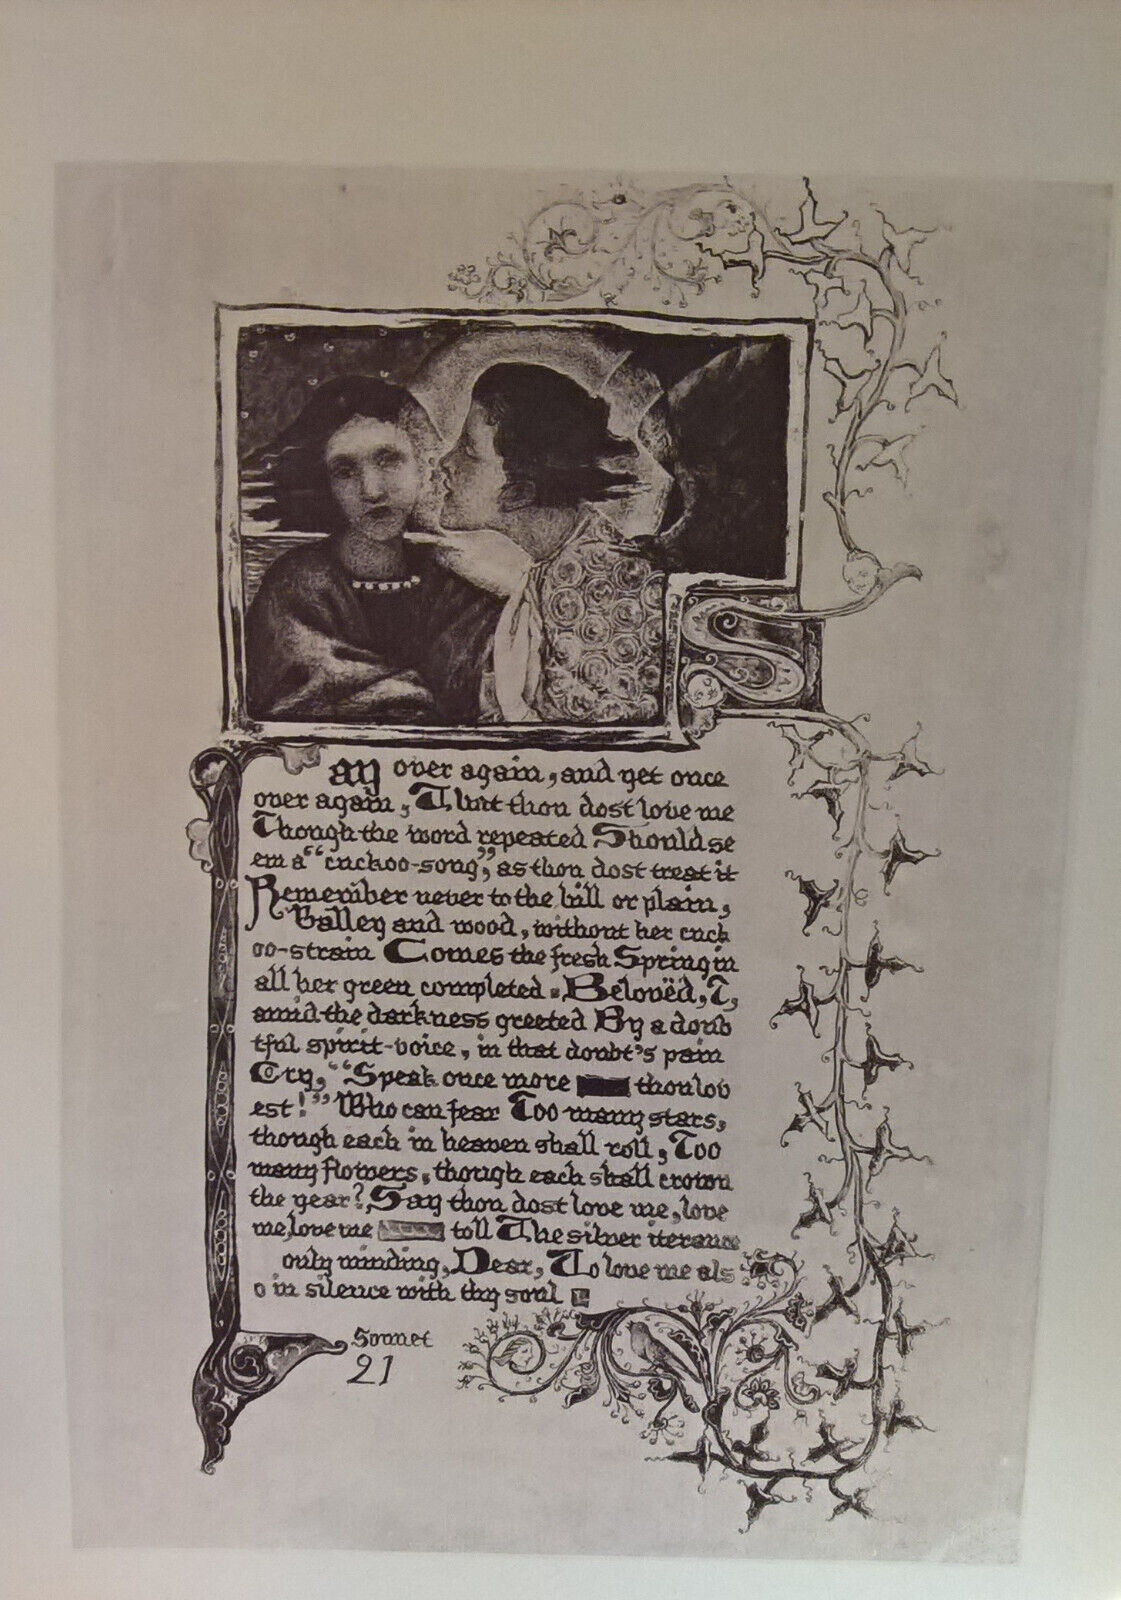 Say over again, and yet once
over again, That thou dost love me
Though the word repeated Should se
em a "cuckoo-song," as thou dost treat it
Remember never to the hill or plain,
Valley and wood, without her cuck
oo-strain Comes the fresh Spring in
all her green completed. Belovëd, I,
amid the darkness greeted By a doub
tful spirit-voice, in that doubt's pain
Cry, "Speak once more thou lov
est!" Who can fear Too many stars,
though each in heaven shall roll, Too
many flowers, though each shall crown
the year? Say thou dost love me, love
me, love me toll The silver iterance
only minding, Dear, To love me als
o in silence with thy soul
Sonnet
21